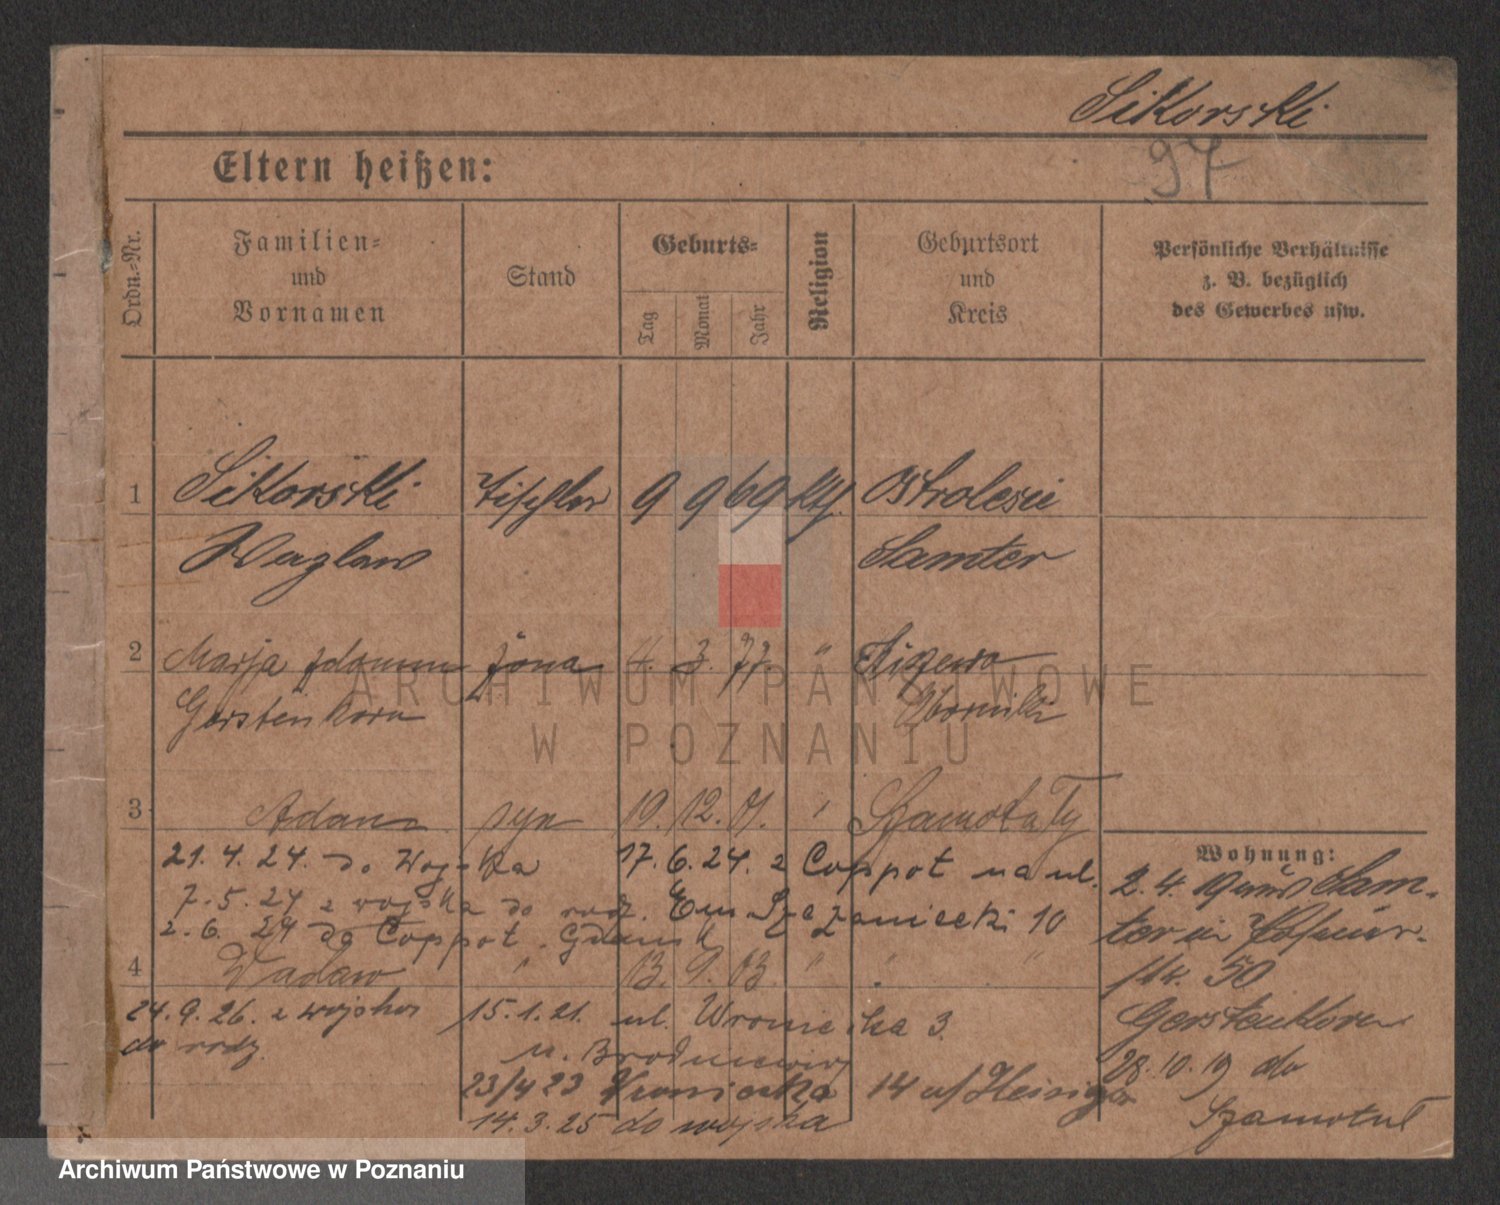 Sikorski
97
Eltern heißen:
Ordn.-Nr.
Familien- und Vornamen
Stand
Geburts-
Tag
Monat
Jahr
Religion
Geburtsort und Kreis
Persönliche Verhältnisse z. B. bezüglich des Gewerbes usw.
1 Sikorski Tischler 9 9 69 kth.
Samter
2 Marja żona 4. 3. 77. "
Gerstenkorn
3 Adam syn 19. 12. 01. Szamotuły
21. 4. 24. do Wojska 17. 6. 24. z Coppot na ul.
7. 5. 24 z wojska do rodz. Em. Szczaniecki 10
2. 6. 24 do Coppot. Gdansk
4 Wacław " 13. 9. 03. " " "
24. 9. 26. z wojska 15. 1. 21. ul. Wroniecka 3.
do rodz.
23/4 23 Wroniecka 14 u/
14. 3. 25 do wojska
Wohnung:
2. 4. 19 Sam-
ter
50
Gerstenkorn
28. 10. 19 do
Szamotuł
ARCHIWUM PAŃSTWOWE
W POZNANIU
Archiwum Państwowe w Poznaniu